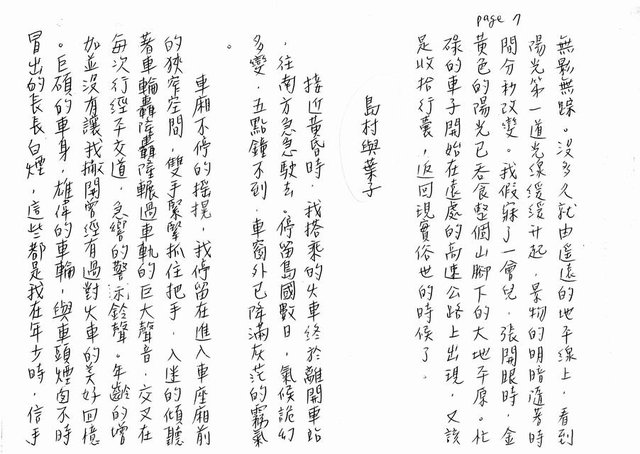 page 7
無影無踪。沒多久就由遥遠的地平線上，看到
陽光第一道光線緩緩升起，景物的明暗隨著時
間分秒改變。我假寐了一會兒，張開眼時，金
黃色的陽光已吞食整個山腳下的大地平原。忙
碌的車子開始在遠處的高速公路上出現，又該
是收拾行囊，返回現實俗世的時候了。
島村與葉子
接近黃昏時，我搭乘的火車終於離開車站
，往南方急急駛去。停留島國數日，氣候詭幻
多變，五點鐘不到，車窗外已降滿灰茫的霧氣
。
車廂不停的搖挸，我停留在進入車座廂前
的狹窄空間，雙手緊緊抓住把手，入迷的傾聽
著車輪轟隆轟隆輾過車軌的巨大聲音，交叉在
每次行經平交道，急響的警示鈴聲。年齡的增
加並沒有讓我撇開曾經有過對火車的美好回憶
。巨碩的車身，雄偉的車輪，與車頭煙囪不時
冒出的長長白煙，這些都是我在年少時，信手